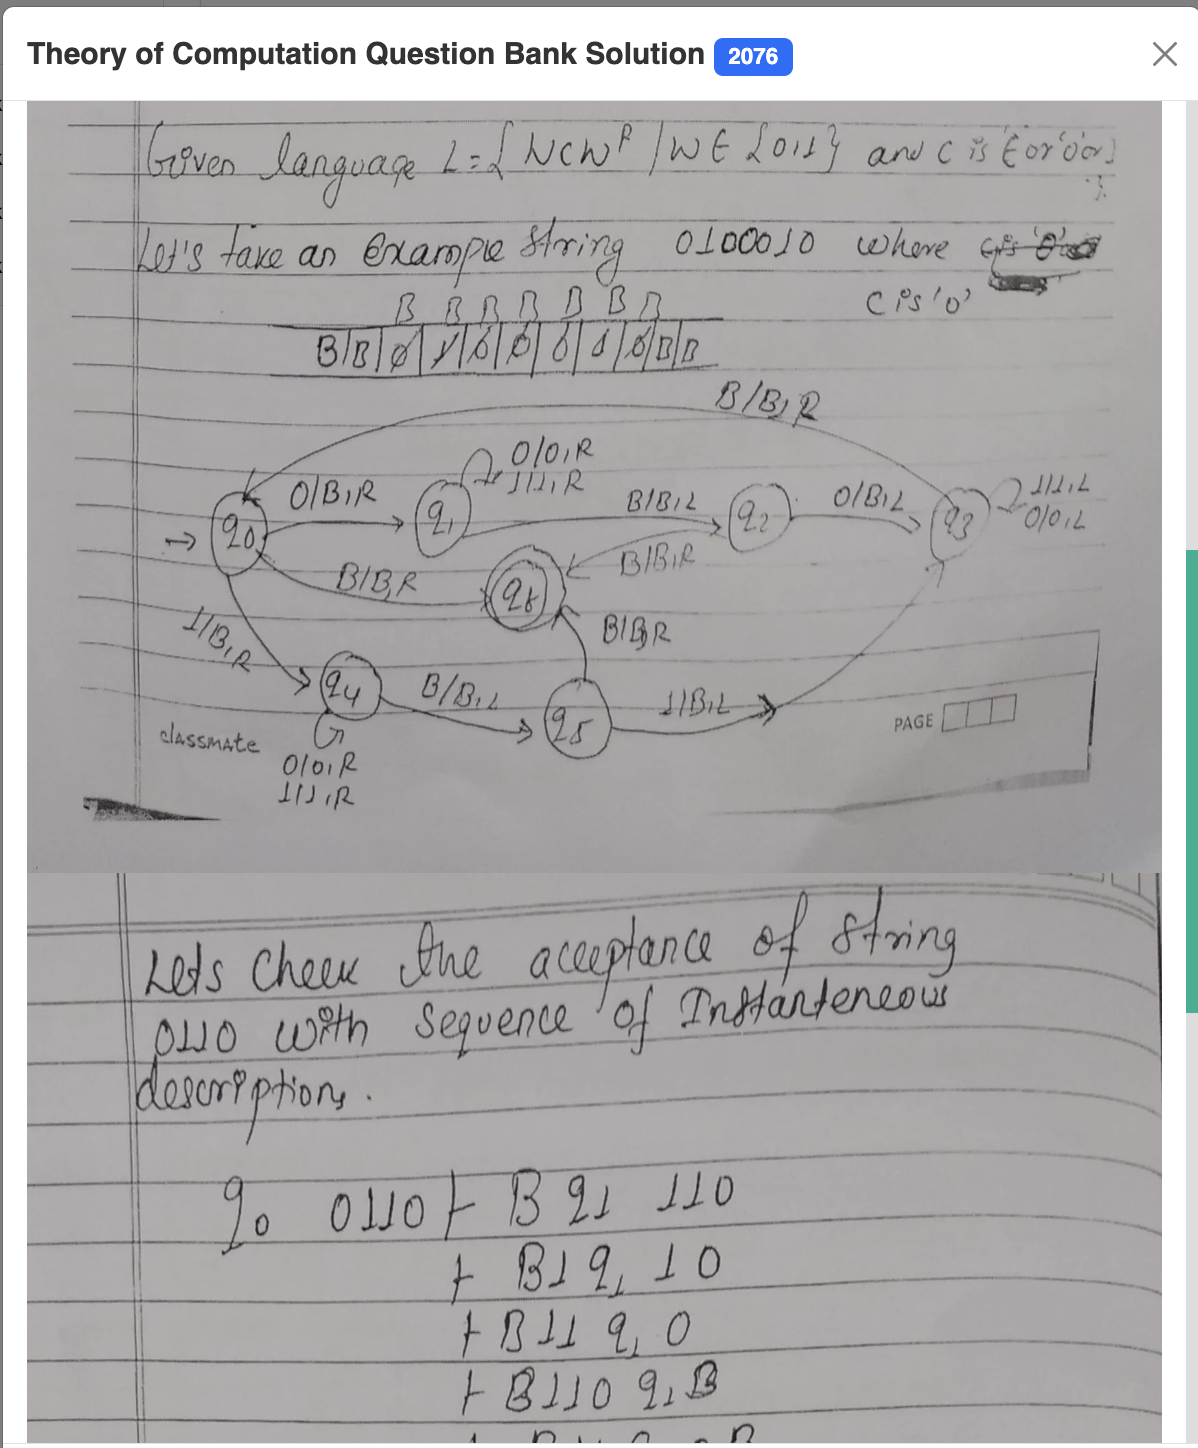 Theory of Computation Question Bank Solution 2076
Given language L={ WCW^R / W ∈ {0,1} and C is ε or '0' or 1
Let's take an Example String 0100010 where
C is '0'
B B B B B B B
B|B|0|1|0|0|0|1|0|B|B
B/B,R
0/0,R
1/1,R
0/B,R
B/B,L
0/B,L
1/1,L
0/0,L
q0
q1
q2
q3
B/B,R
B/B,R
q6
B/B,R
1/B,R
q4
B/B,L
q5
1/B,L
PAGE
classmate
0/0,R
1/1,R
Lets Check the acceptance of String
0110 with Sequence of Instanteneous
descriptions.
q0 0110 ⊢ B q1 110
⊢ B1 q1 10
⊢ B11 q1 0
⊢ B110 q1 B